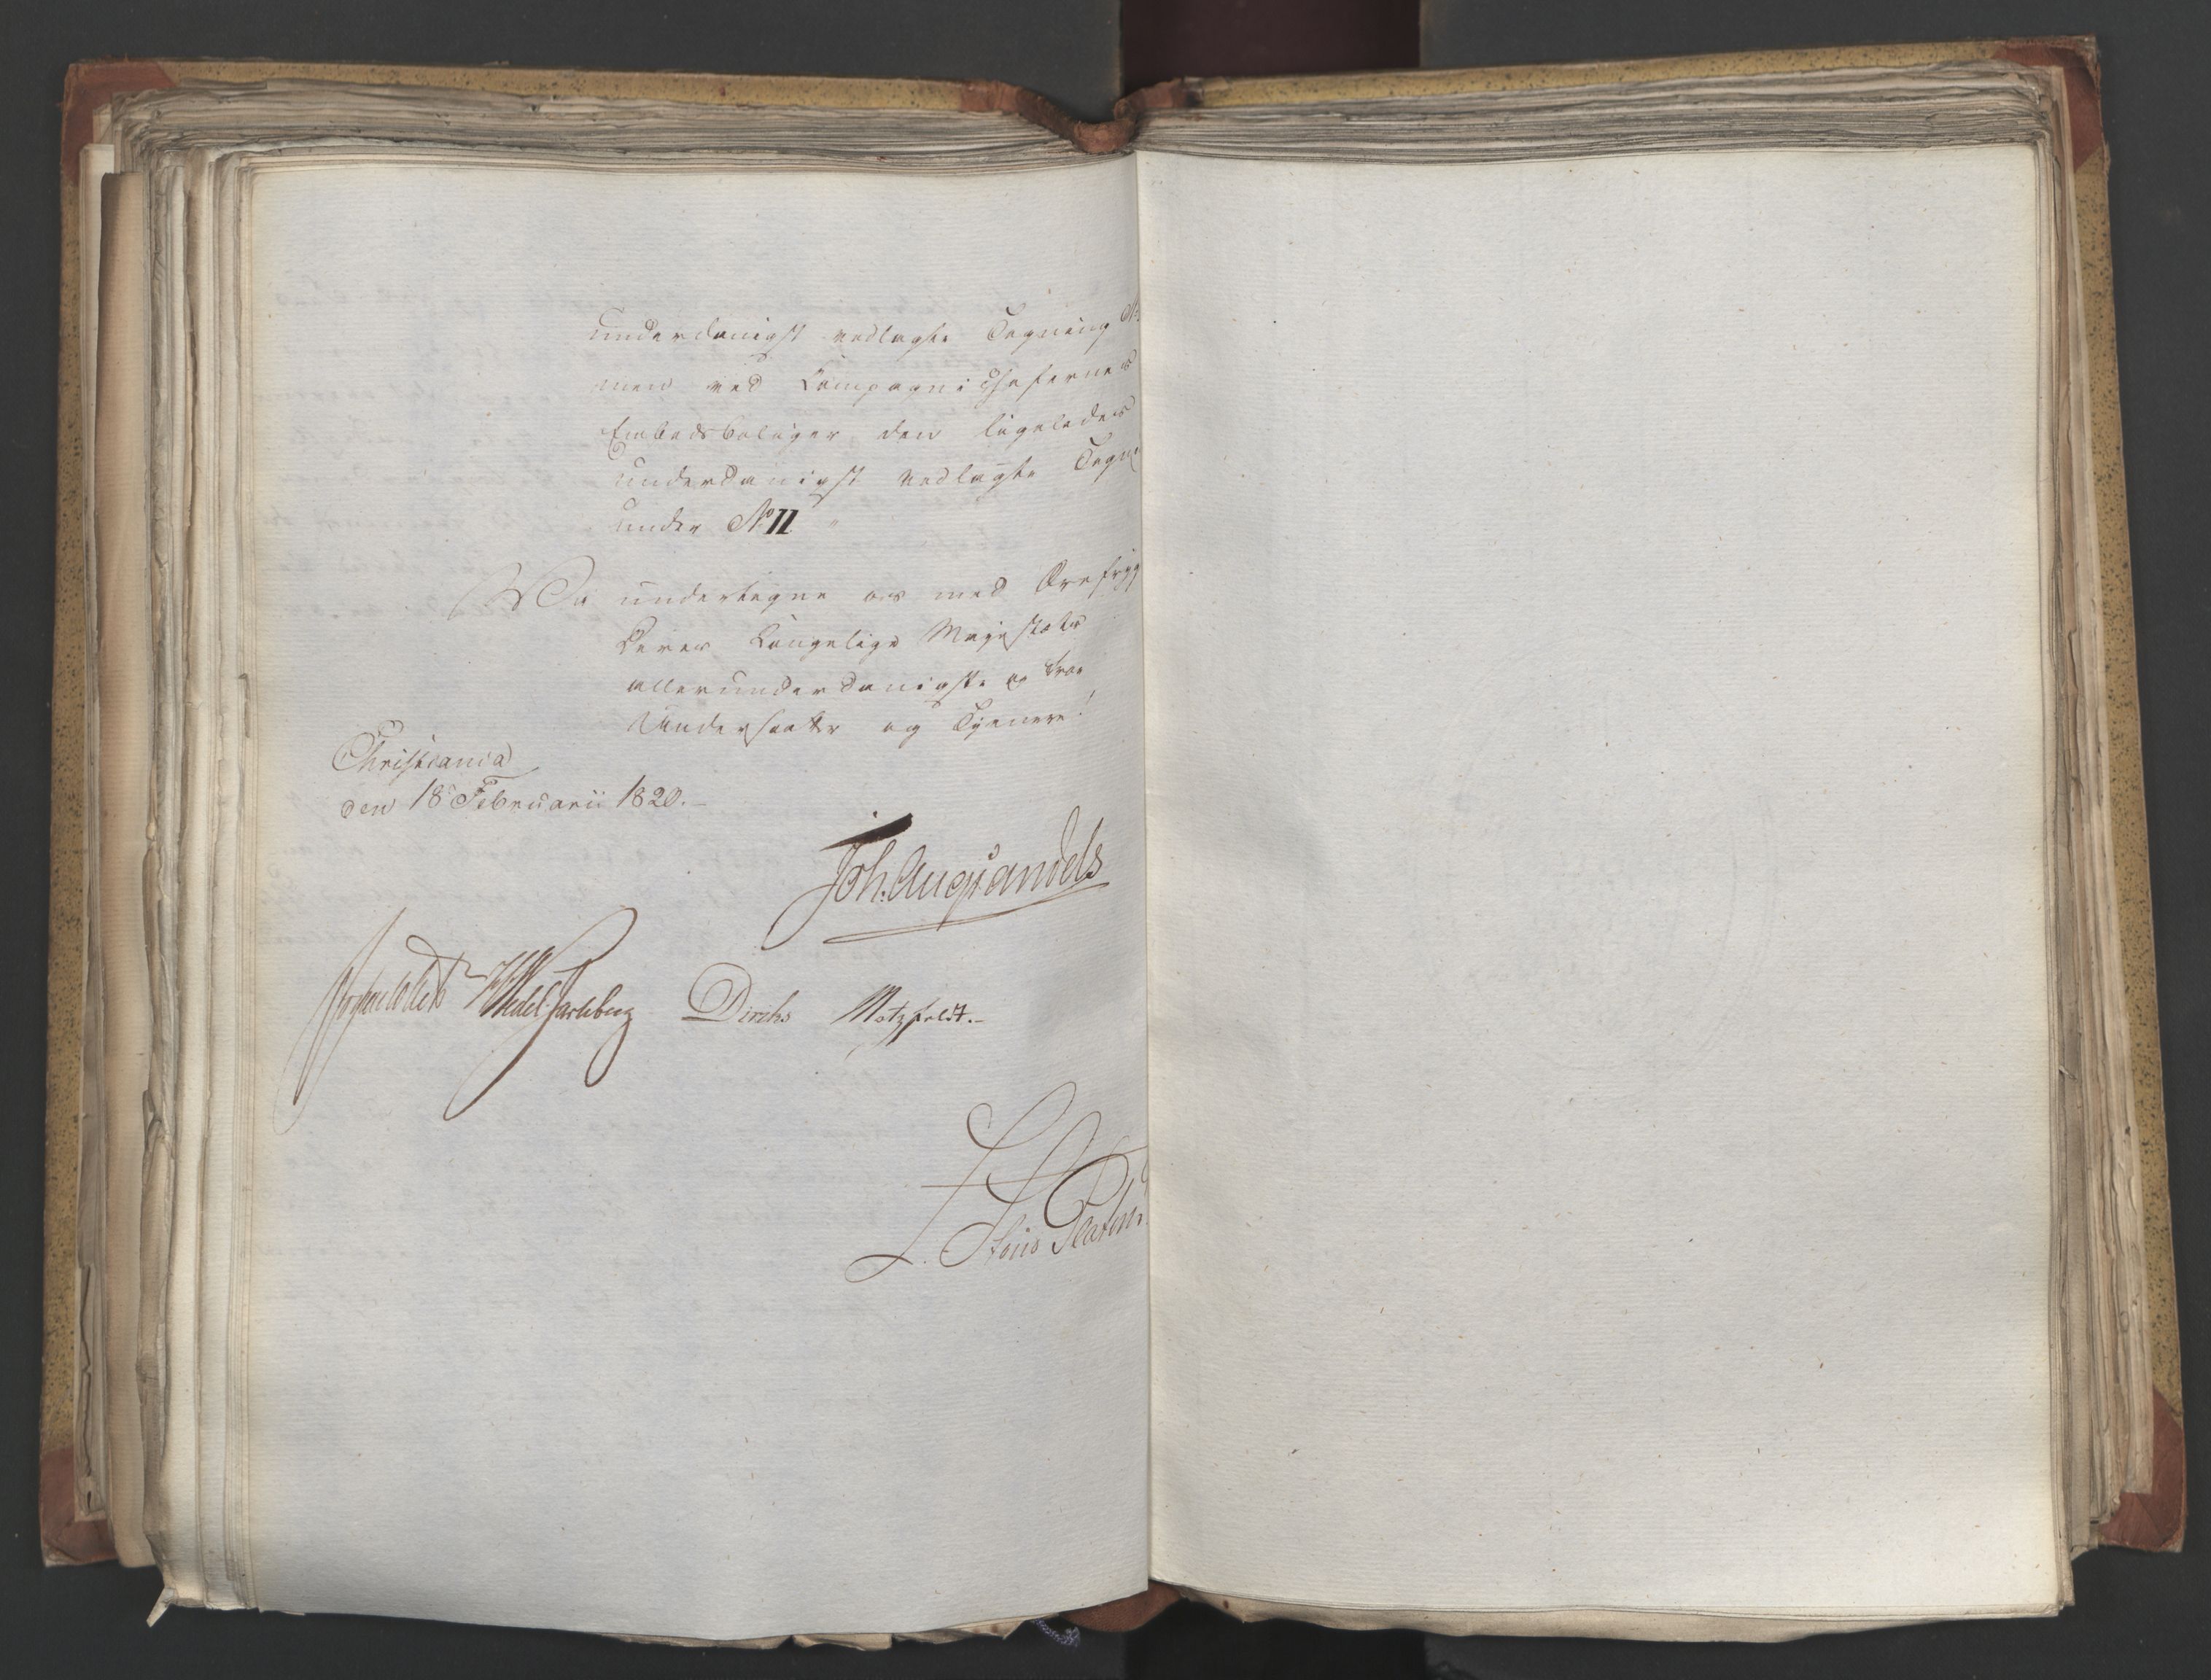 underdanigst vedlagte Tegning N
men ved Compagnichefernes
Embedsboliger den ligeledes
underdanigst vedlagte Tegn
under No II
Vi undertegne os med Ærefrygt
Deres Kongelige Majestæts
allerunderdanigste og troe
Undersaatter og Tjenere!
Christiania
den 18de Februarii 1820.
Joh. Aug. Sandels
Sommerhielm HWedel Jarlsberg Diriks Motzfeldt.
L. Stoud Platou